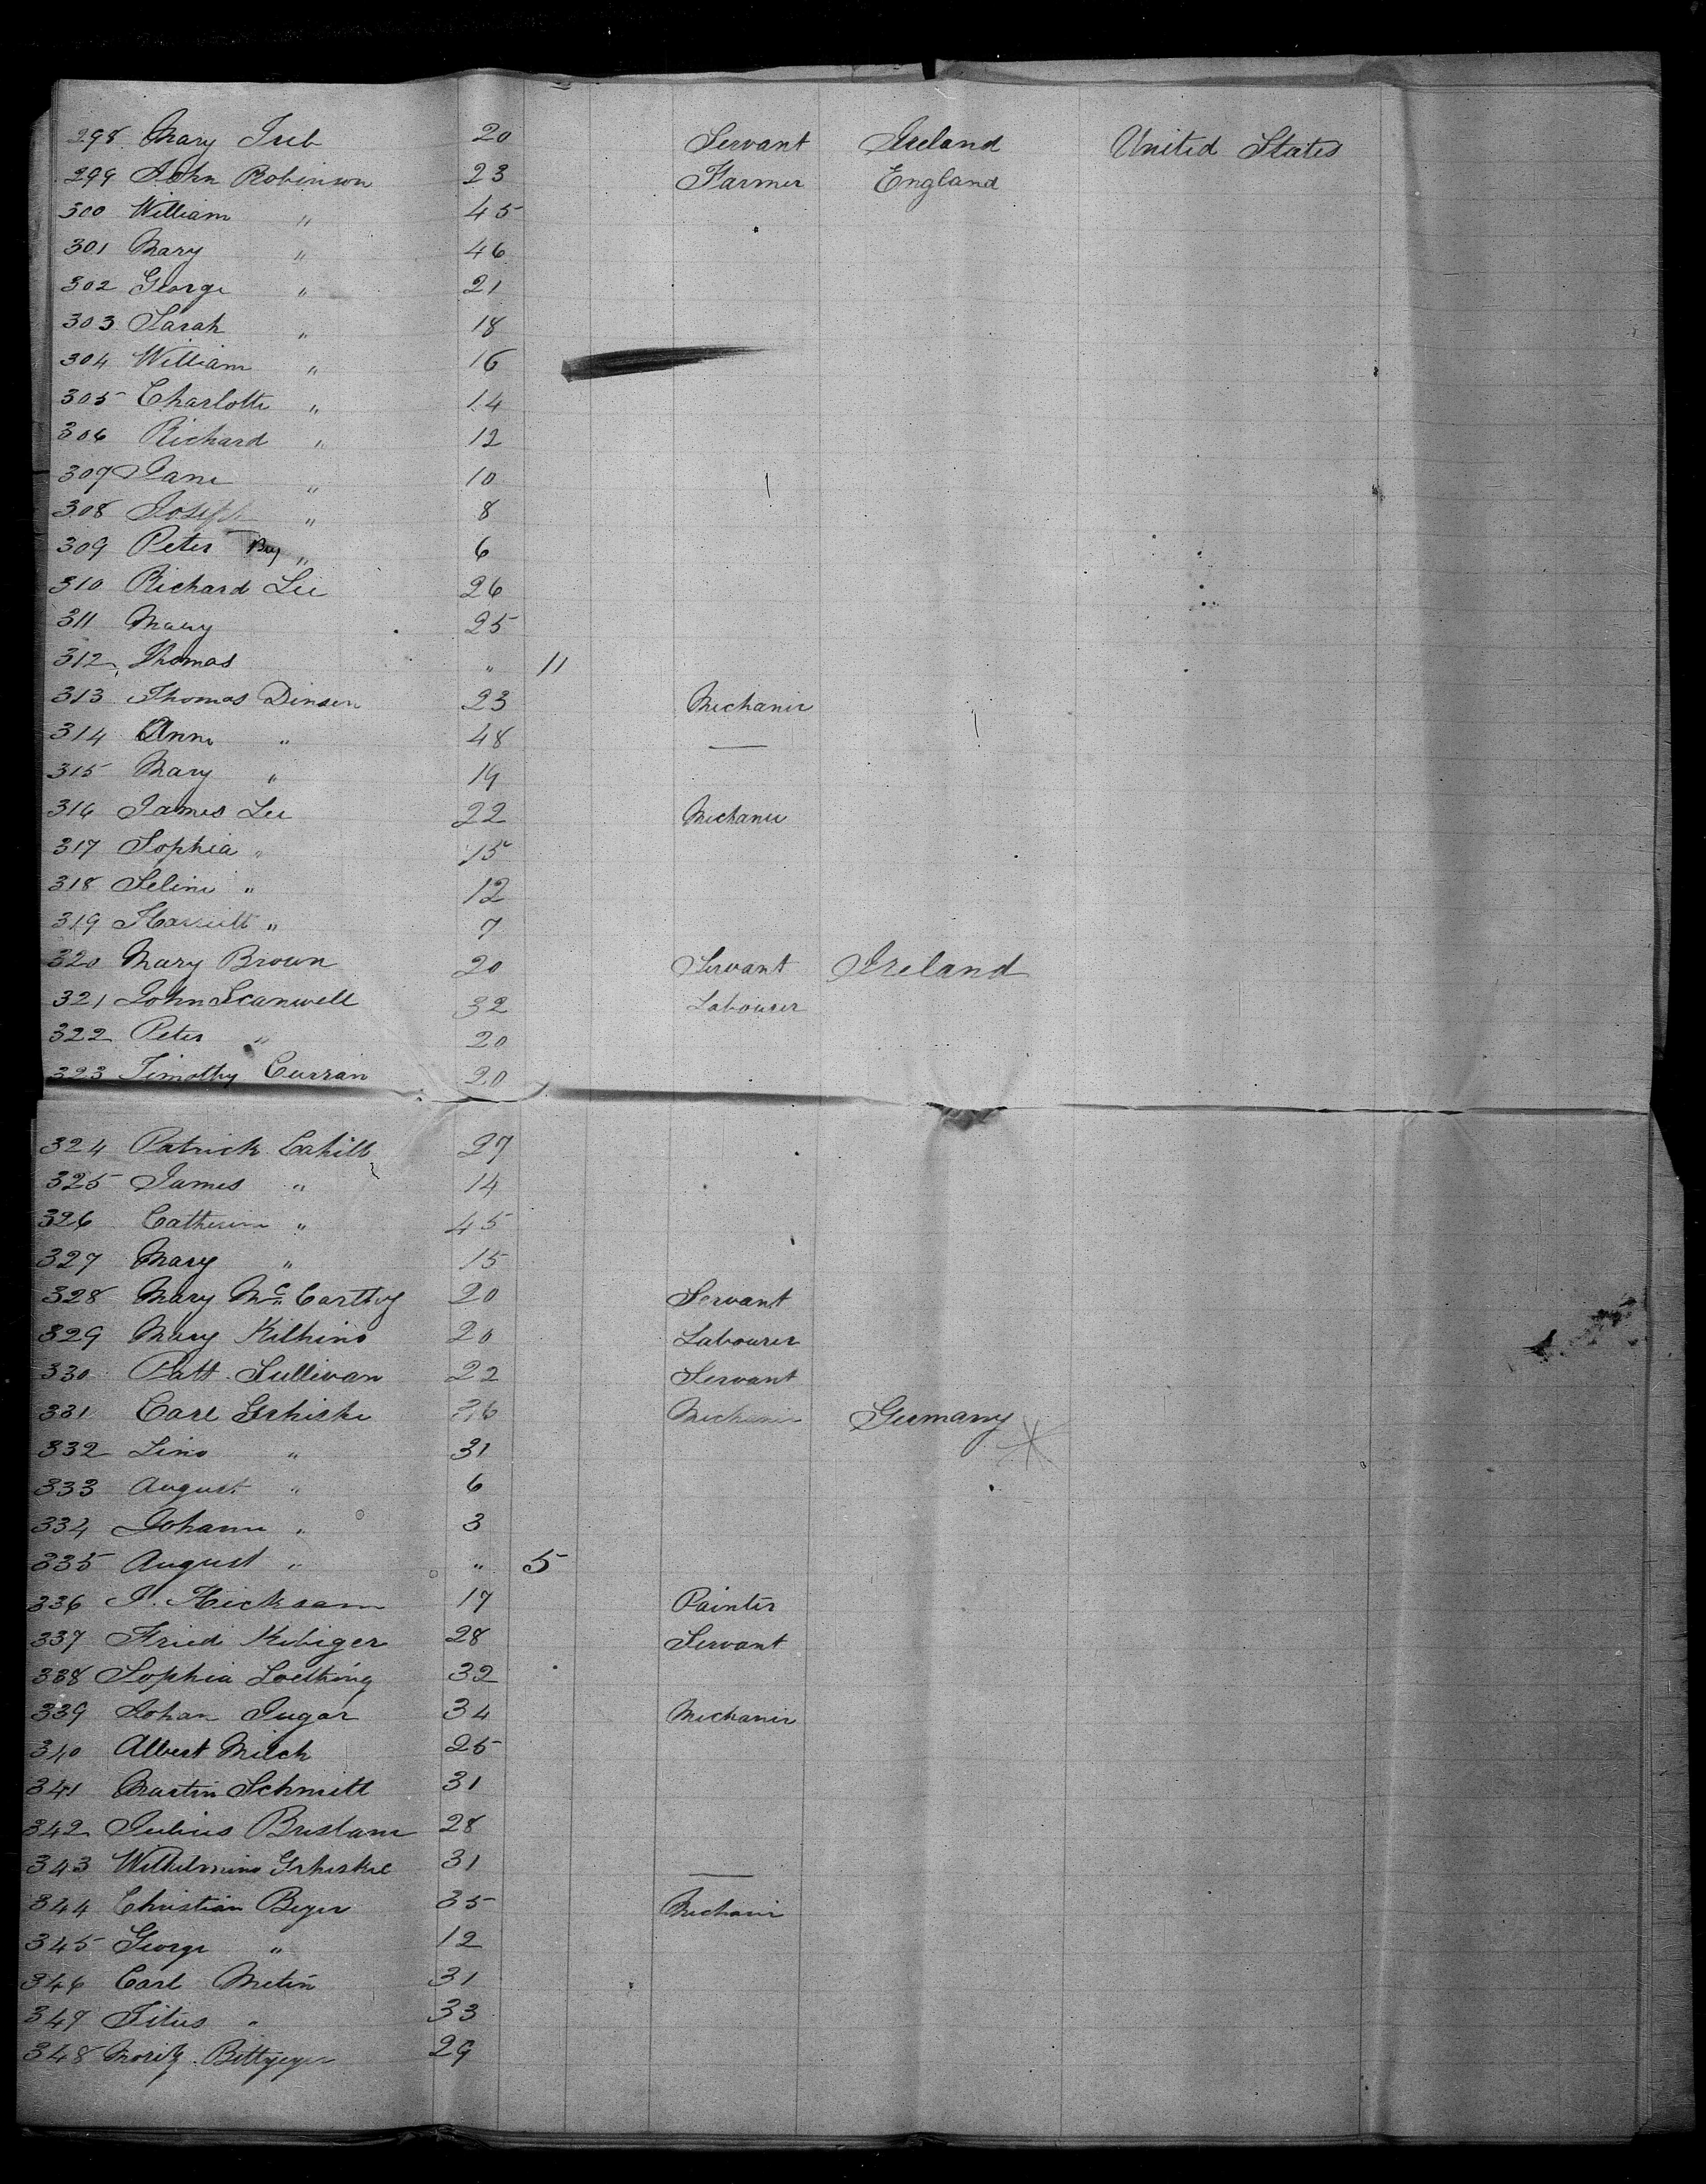 298 Mary 20 Servant Ireland United States
299 John Robinson 23 Farmer England
300 William " 45
301 Mary " 46
302 George " 21
303 Sarah " 18
304 William " 16
305 Charlotte " 14
306 Richard " 12
307 Jane " 10
308 Joseph " 8
309 Peter Boy " 6
310 Richard Lee 26
311 Mary 25
312 Thomas " 11
313 Thomas Dinsen 23 Mechanic
314 Anne " 48 —
315 Mary " 14
316 James Lee 22 Mechanic
317 Sophia " 15
318 Selina " 12
319 Harriett " 7
320 Mary Brown 20 Servant Ireland
321 John Scanwell 32 Labourer
322 Peter " 20
323 Timothy Curran 20
324 Patrick Cahill 27
325 James " 14
326 Catherine " 45
327 Mary " 15
328 Mary McCarthy 20 Servant
329 Mary Kilkins 20 Labourer
330 Patt Sullivan 22 Servant
331 Carl 36 Mechanic Germany
332 Lina " 31
333 August " 6
334 Johann " 3
335 August " " 5
336 J. Hickaam 17 Painter
337 Fried Kubiger 28 Servant
338 Sophia Loething 32
339 Johan Jugar 34 Mechanic
340 Albert Milch 25
341 Martin Schmitt 31
342 Julius Breslaur 28
343 Wilhelmina 31 —
344 Christian Beyer 35 Mechanic
345 George " 12
346 Carl Metin 31
347 Titus " 33
348 Moritz 29